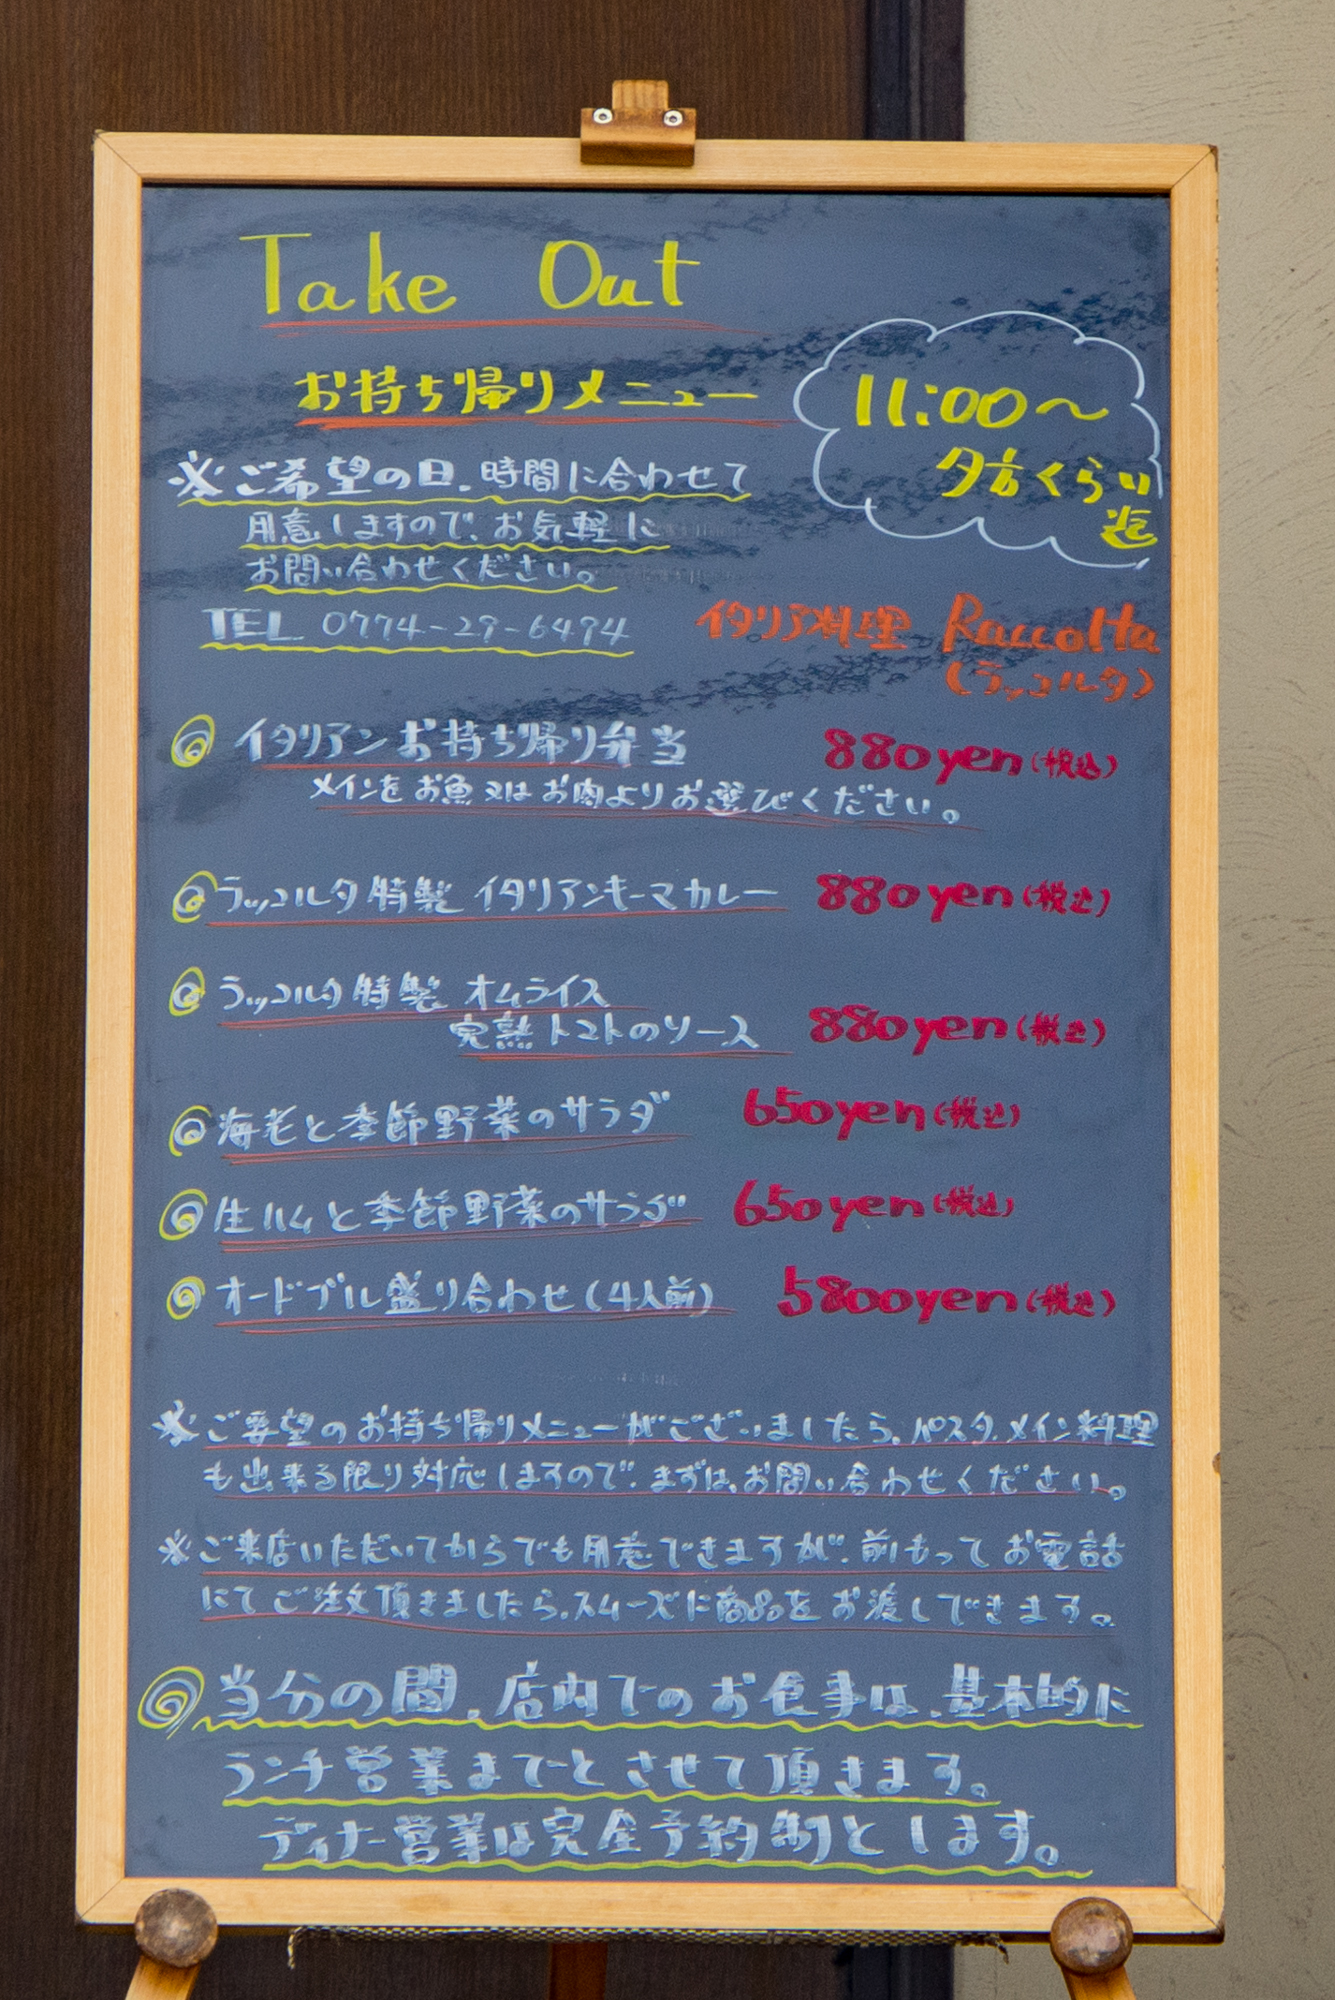 Take Out
お持ち帰りメニュー
11:00〜
夕方くらい
迄
※ご希望の日、時間に合わせて
用意しますので、お気軽に
お問い合わせください。
TEL 0774-29-6494
イタリア料理 Raccolta
(ラッコルタ)
イタリアンお持ち帰り弁当 880yen(税込)
メインをお魚又はお肉よりお選びください。
ラッコルタ特製 イタリアンキーマカレー 880yen(税込)
ラッコルタ特製 オムライス
完熟トマトのソース 880yen(税込)
海老と季節野菜のサラダ 650yen(税込)
生ハムと季節野菜のサラダ 650yen(税込)
オードブル盛り合わせ(4人前) 5800yen(税込)
※ご要望のお持ち帰りメニューがございましたら、パスタ、メイン料理
も出来る限り対応しますので、まずは、お問い合わせください。
※ご来店いただいてからでも用意できますが、前もってお電話
にてご注文頂きましたら、スムーズに商品をお渡しできます。
当分の間、店内でのお食事は、基本的に
ランチ営業までとさせて頂きます。
ディナー営業は完全予約制とします。